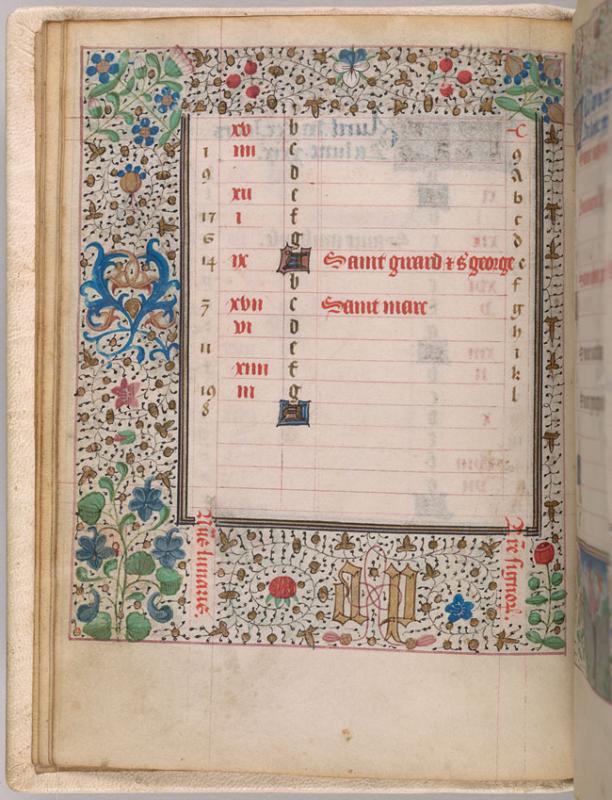 xv b c
1 iiii c 9
9 d a
xii e b
17 i f c
6 g d
14 ix A Saint girard & s george e
b f
3 xvii c Saint marc g
vi d h
11 e i
xiiii f k
19 iii g l
8 A
lunarie.
signoꝝ.